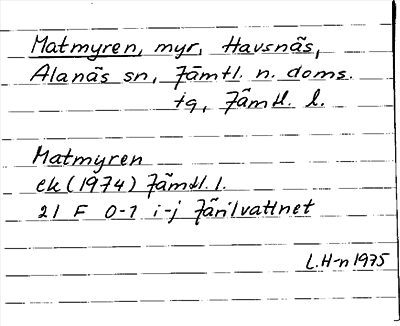 Matmyren, myr, Havsnäs,
Alanäs sn, Jämtl. n. doms.
tg, Jämtl. l.
Matmyren
ek (1974) Jämtl. l.
21 F 0-1 i-j Järilvattnet
L.H-n 1975